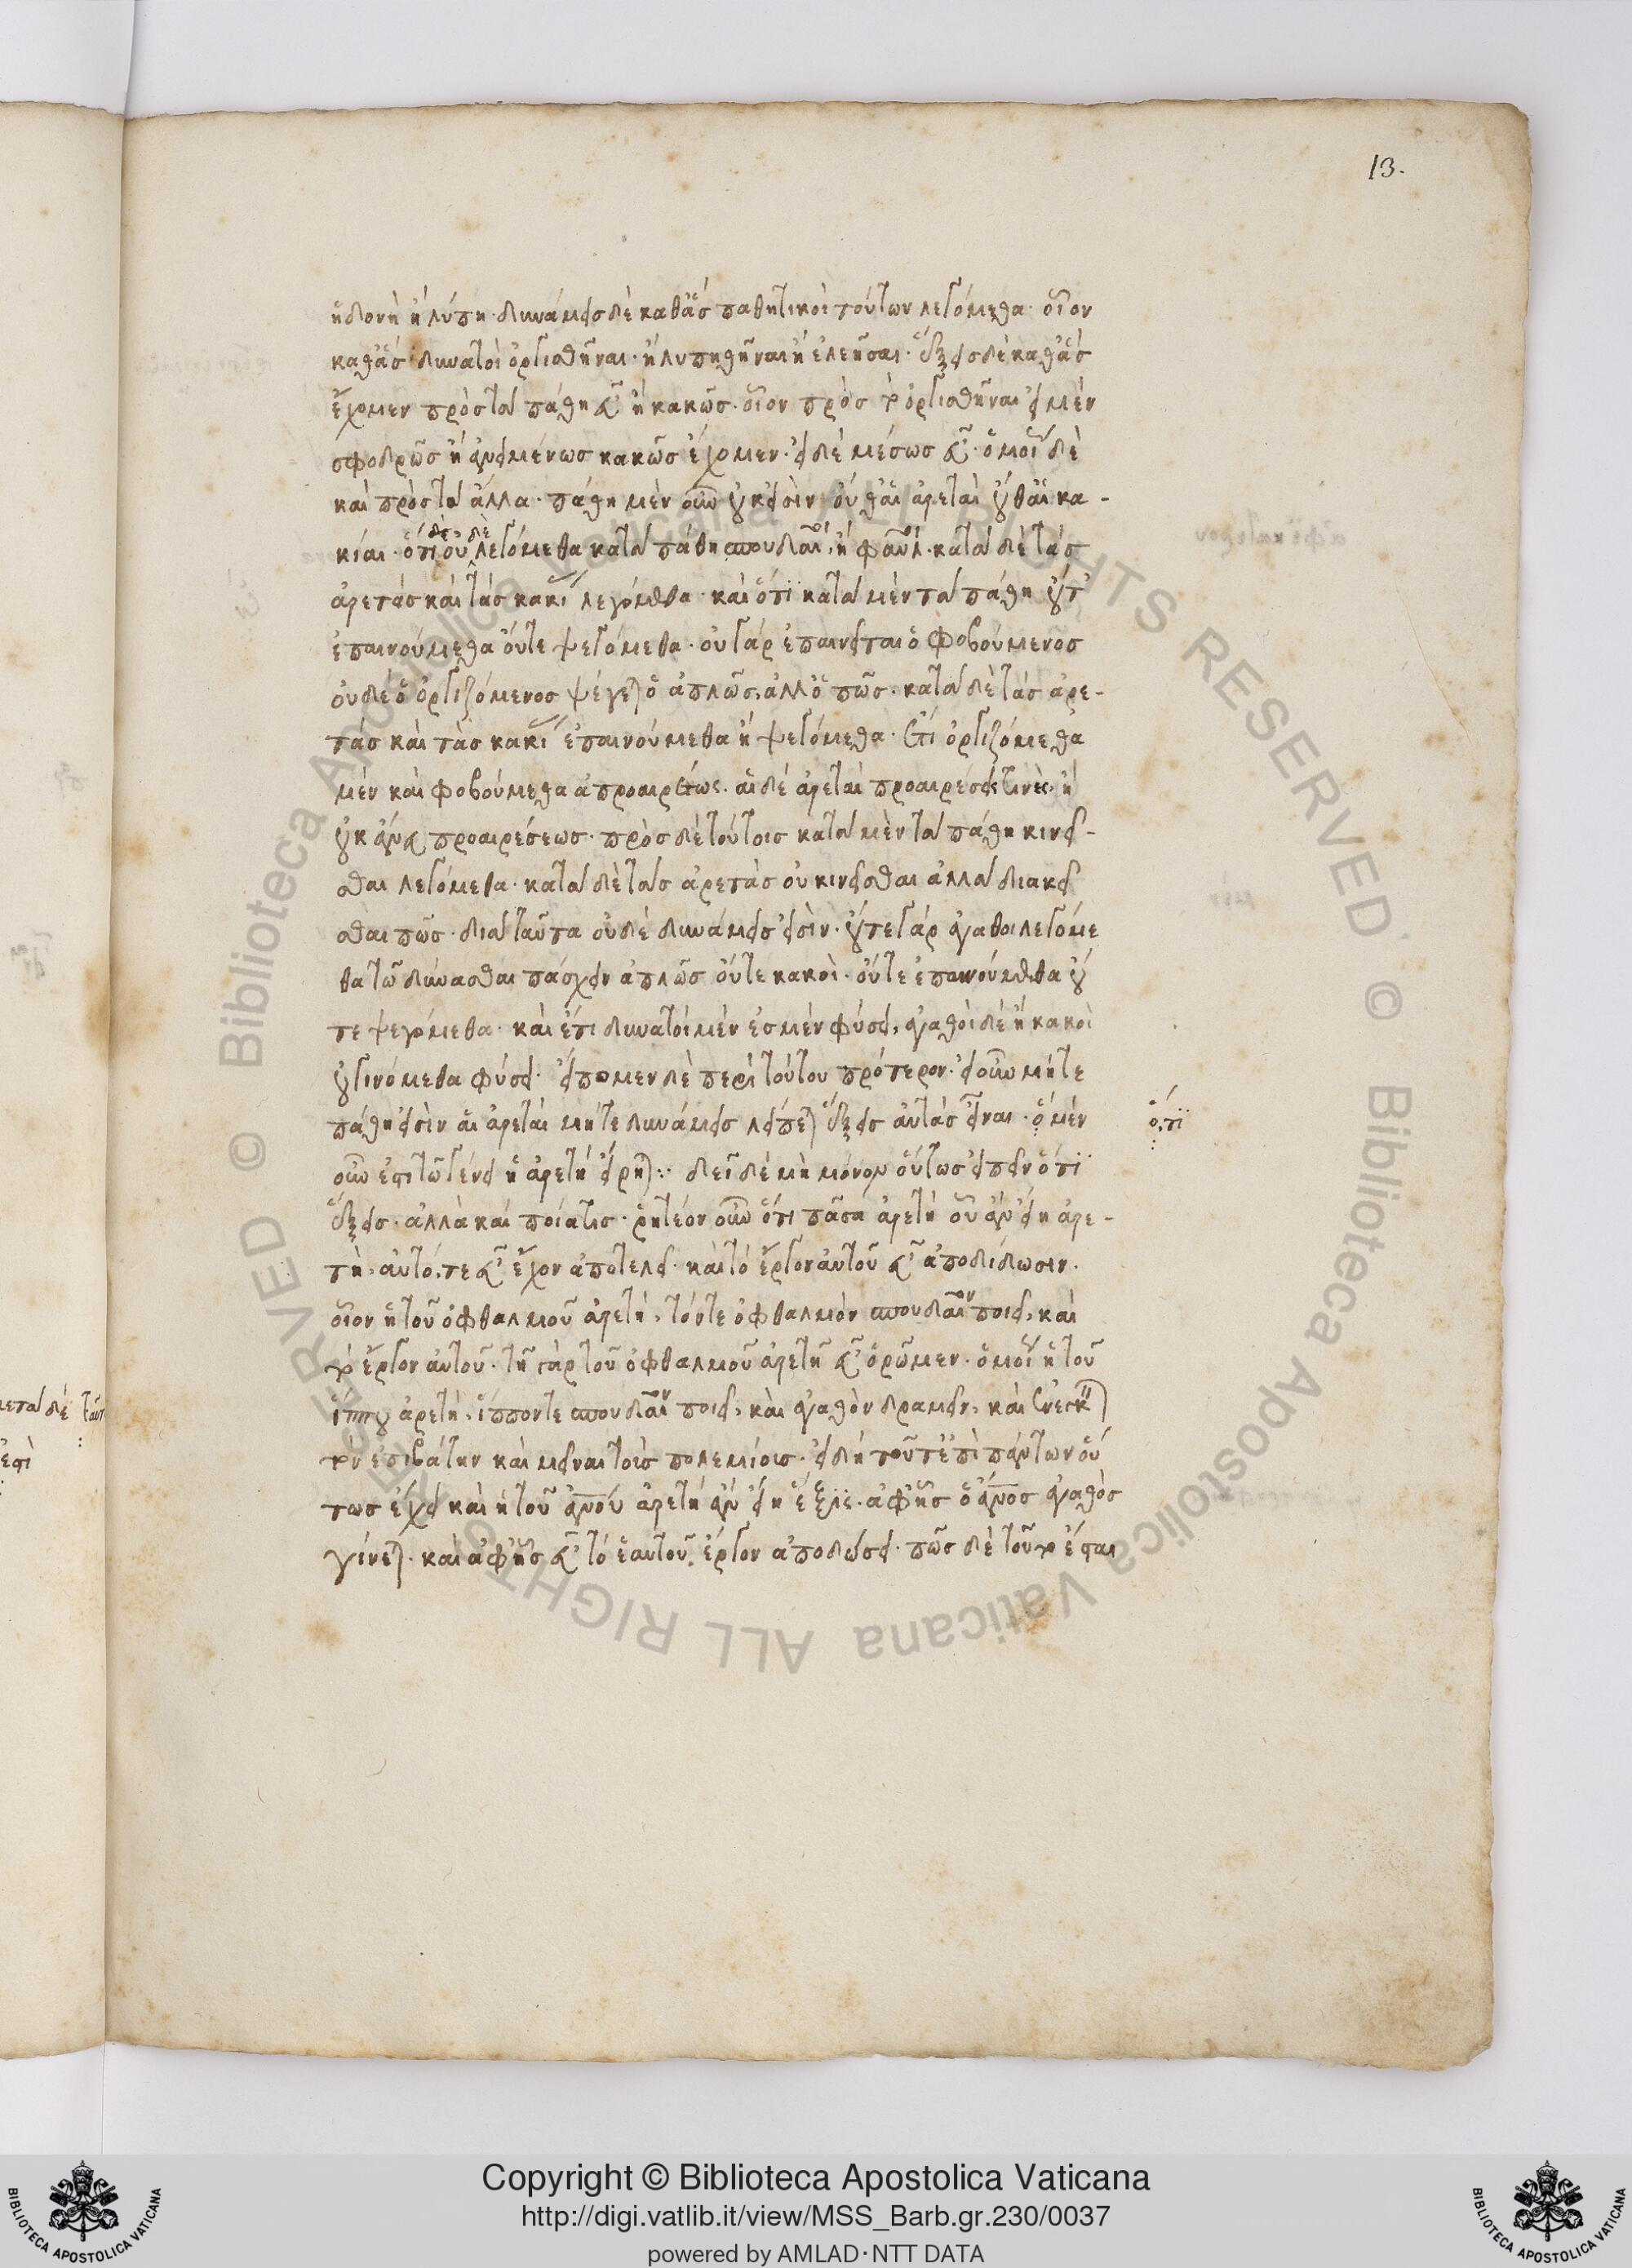 13.
ἡδονὴ ἡ λύπη· δυνάμεις δὲ καθ' ἃς παθητικοὶ τούτων λεγόμεθα· οἷον
καθ' ἃς δυνατοὶ ὀργισθῆναι· ἢ λυπηθῆναι ἢ ἐλεῆσαι· ἕξεις δὲ καθ' ἃς
ἔχομεν πρὸς τὰ πάθη εὖ ἢ κακῶς· οἷον πρὸς τὸ ὀργισθῆναι εἰ μὲν
σφοδρῶς ἢ ἀνειμένως κακῶς ἔχομεν· εἰ δὲ μέσως εὖ· ὁμοί δὲ
καὶ πρὸς τὰ ἄλλα· πάθη μὲν οὖν οὐκ εἰσὶν οὔθ' αἱ ἀρεταὶ οὔθ' αἱ κα-
κίαι· ὅτι οὐ λεγόμεθα κατὰ πάθη σπουδαῖ, ἢ φαῦλ· κατὰ δὲ τὰς
ἀρετὰς καὶ τὰς κακί λεγόμεθα· καὶ ὅτι κατὰ μὲν τὰ πάθη οὔτ'
ἐπαινούμεθα οὔτε ψεγόμεθα· οὐ γὰρ ἐπαινεῖται ὁ φοβούμενος
οὐδὲ ὁ ὀργιζόμενος ψέγεται ὁ ἁπλῶς, ἀλλ' ὁ πῶς· κατὰ δὲ τὰς ἀρε-
τὰς καὶ τὰς κακί ἐπαινούμεθα ἢ ψεγόμεθα· ἔτι ὀργιζόμεθα
μὲν καὶ φοβούμεθα ἀπροαιρέτως· αἱ δὲ ἀρεταὶ προαιρέσεις τινὲς· ἢ
οὐκ ἄνευ προαιρέσεως· πρὸς δὲ τούτοις κατὰ μὲν τὰ πάθη κινεῖ-
σθαι λεγόμεθα· κατὰ δὲ τὰς ἀρετὰς οὐ κινεῖσθαι ἀλλὰ διακεῖ
σθαι πῶς· διὰ ταῦτα οὐδὲ δυνάμεις εἰσὶν· οὔτε γὰρ ἀγαθοὶ λεγόμε
θα τῶ δύνασθαι πάσχειν ἁπλῶς οὔτε κακοὶ· οὔτε ἐπαινούμεθα οὔ
τε ψεγόμεθα· καὶ ἔτι δυνατοὶ μὲν ἐσμὲν φύσει, ἀγαθοὶ δὲ ἢ κακοὶ
οὐ γινόμεθα φύσει· εἴπομεν δὲ περὶ τούτου πρότερον· εἰ οὖν μήτε
πάθη εἰσὶν αἱ ἀρεταὶ μήτε δυνάμεις λείπεται ἕξεις αὐτὰς εἶναι· ὅ μὲν
ὅ,τι
οὖν ἐστὶ τῶ γένει ἡ ἀρετὴ εἴρηται:· δεῖ δὲ μὴ μόνον οὕτως εἰπεῖν ὅτι
ἕξις· ἀλλὰ καὶ ποία τις· ῥητέον οὖν ὅτι πᾶσα ἀρετὴ οὗ ἂν εἴη ἀρε-
τὴ, αὐτό,τε εὖ ἔχον ἀποτελεῖ· καὶ τὸ ἔργον αὐτοῦ εὖ ἀποδίδωσιν·
οἷον ἡ τοῦ ὀφθαλμοῦ ἀρετὴ, τόντε ὀφθαλμὸν σπουδαῖον ποιεῖ, καὶ
τὸ ἔργον αὐτοῦ· τῆ γὰρ τοῦ ὀφθαλμοῦ ἀρετῆ εὖ ὁρῶμεν· ὁμοί ἡ τοῦ
ἵππου ἀρετὴ, ἵππον τε σπουδαῖον ποιεῖ, καὶ ἀγαθὸν δραμεῖν, καὶ ἐνεγκεῖν
τὸν ἐπιβάτην καὶ μεῖναι τοὺς πολεμίοις· εἰ δὴ τοῦτ' ἐπὶ πάντων οὕ
τως ἔχει καὶ ἡ τοῦ ἀνου ἀρετὴ ἂν εἴη ἕξις· ἀφ' ἧς ὁ ἄνος ἀγαθὸς
γίνεται· καὶ ἀφ' ἧς εὖ τὸ ἑαυτοῦ ἔργον ἀποδώσει· πῶς δὲ τοῦτο ἔσται
Copyright © Biblioteca Apostolica Vaticana
http://digi.vatlib.it/view/MSS_Barb.gr.230/0037
powered by AMLAD·NTT DATA